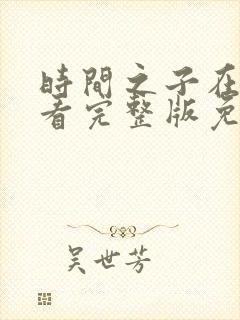 時間之子在
看完整版免
吴世芳